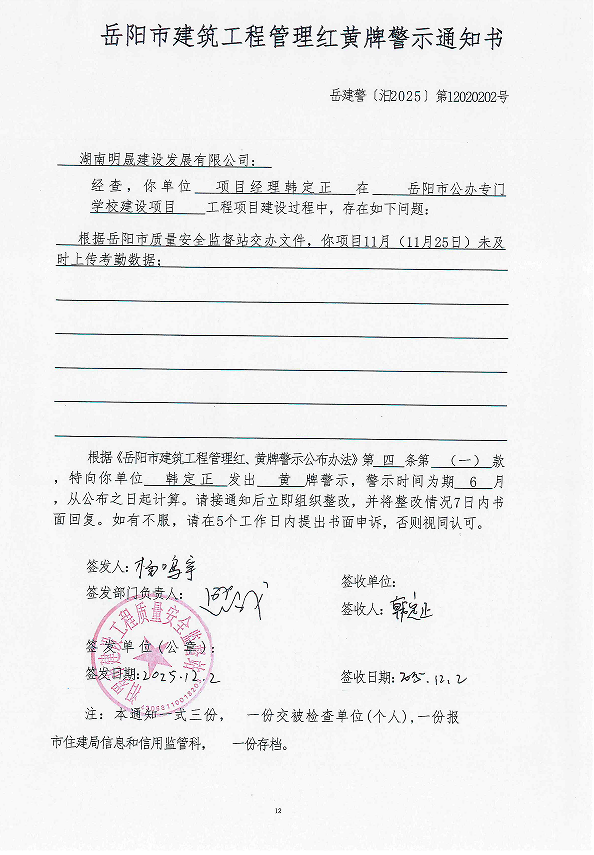 岳阳市建筑工程管理红黄牌警示通知书
岳建警〔汨2025〕第12020202号
湖南明晟建设发展有限公司:
经查,你单位 项目经理韩定正 在 岳阳市公办专门
学校建设项目 工程项目建设过程中,存在如下问题:
根据岳阳市质量安全监督站交办文件,你项目11月(11月25日)未及
时上传考勤数据;
根据《岳阳市建筑工程管理红、黄牌警示公布办法》第 四 条第 (一) 款
,特向你单位 韩定正 发出 黄 牌警示,警示时间为期 6 月
,从公布之日起计算。请接通知后立即组织整改,并将整改情况7日内书
面回复。如有不服,请在5个工作日内提出书面申诉,否则视同认可。
签发人:杨鸣宇
签收单位:
签发部门负责人:
签收人:韩定正
签发单位(公章):
签发日期:2025.12.2
签收日期:2025.12.2
注:本通知一式三份, 一份交被检查单位(个人),一份报
市住建局信息和信用监管科, 一份存档。
12